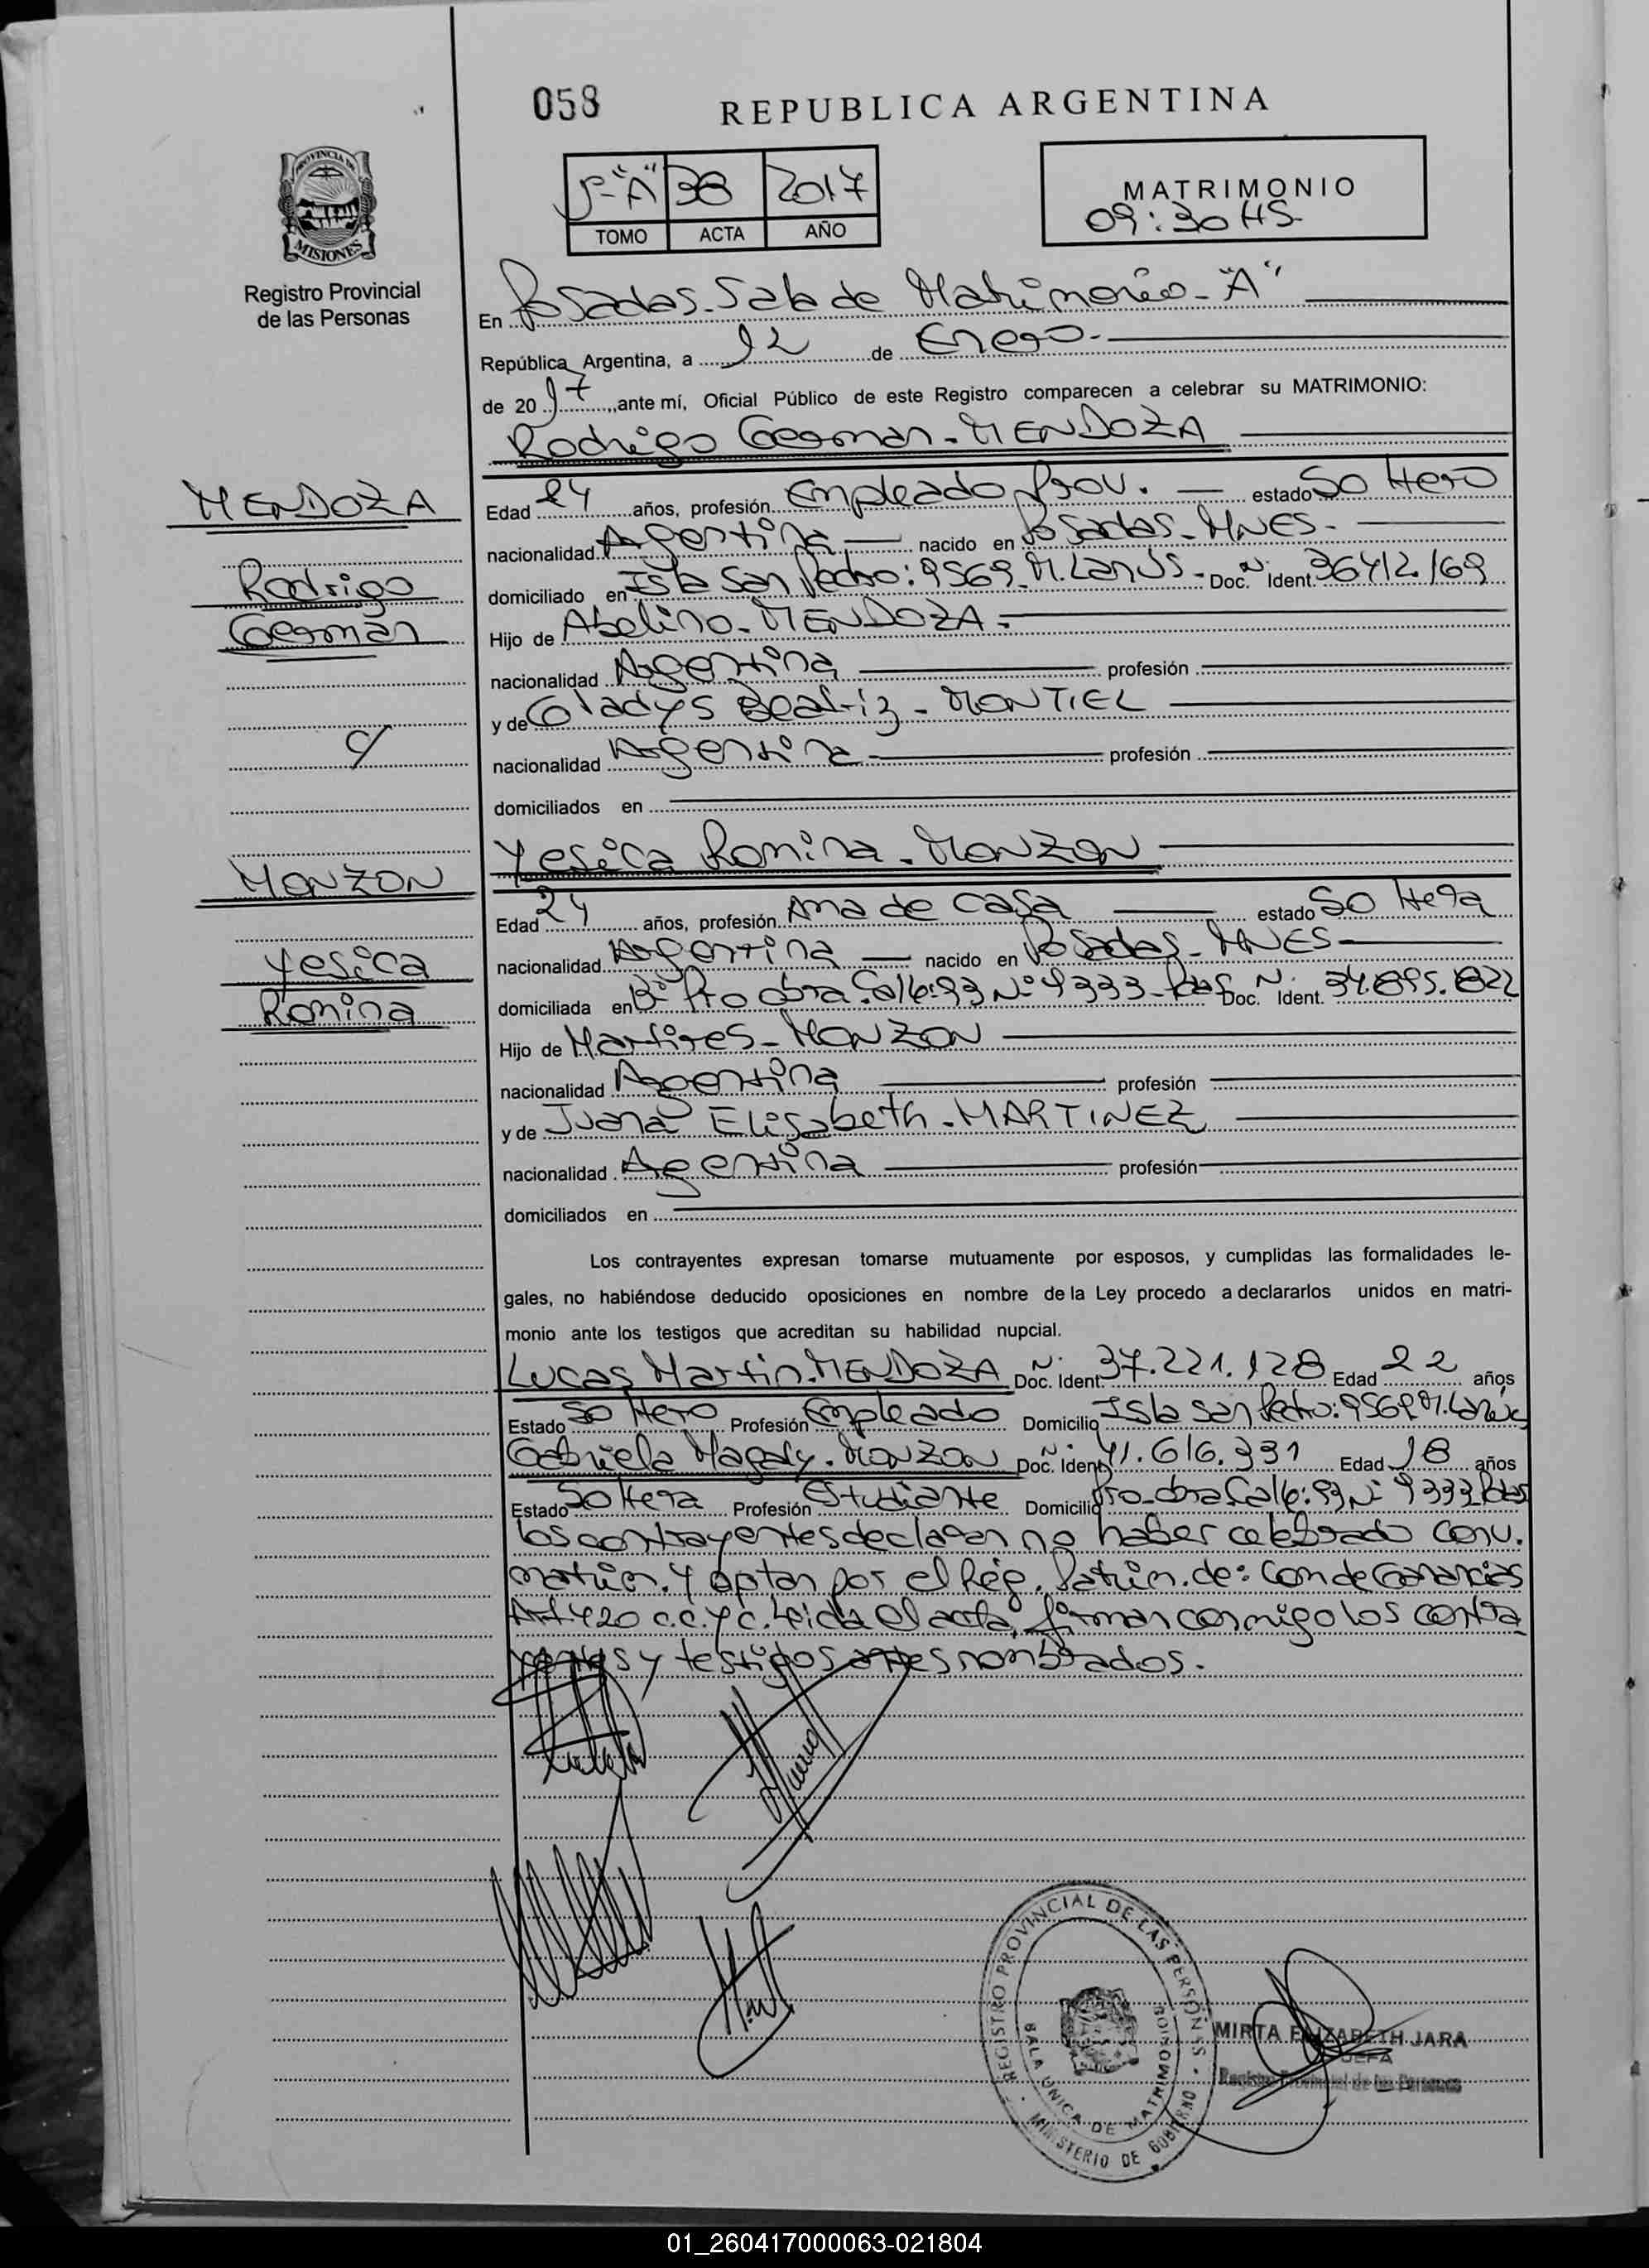 058
REPUBLICA ARGENTINA
PROVINCIA DE
MISIONES
Registro Provincial
de las Personas
"A" 38 2017
TOMO ACTA AÑO
MATRIMONIO
09:30 HS-
En Posadas-Sala de Matrimonio-"A"
República Argentina, a 12 de Enero.-
de 20 17 ,,ante mí, Oficial Público de este Registro comparecen a celebrar su MATRIMONIO:
Rodrigo German-MENDOZA
MENDOZA
Rodrigo
German
c/
MONZON
Yesica
Romina
Edad 24 años, profesión Empleado Prov. estado Soltero
nacionalidad Argentina nacido en Posadas-MNES-
domiciliado en Isla San Pedro: 9569-M.Lanús- Doc. N Ident. 36412169
Hijo de Abelino-MENDOZA-
nacionalidad Argentina profesión
y de Gladys Beatriz-MONTIEL
nacionalidad Argentina profesión
domiciliados en
Yesica Romina-MONZON
Edad 24 años, profesión Ama de casa estado Soltera
nacionalidad Argentina nacido en Posadas-MNES-
domiciliada en Bº Pro obra Calle:93 Nº 9333- Doc. N. Ident. 34.895.822
Hijo de Martires-MONZON
nacionalidad Argentina profesión
y de Juana Elisabeth-MARTINEZ
nacionalidad Argentina profesión
domiciliados en
Los contrayentes expresan tomarse mutuamente por esposos, y cumplidas las formalidades le-
gales, no habiéndose deducido oposiciones en nombre de la Ley procedo a declararlos unidos en matri-
monio ante los testigos que acreditan su habilidad nupcial.
Lucas Martin-MENDOZA Doc. Ident. 37.221.128 Edad 22 años
Estado Soltero Profesión Empleado Domicilio Isla San Pedro:9569 M.Lanús
Gabriela Magaly-MONZON Doc. Ident. 41.616.331 Edad 18 años
Estado Soltera Profesión Estudiante Domicilio Pro-obra Calle:93 Nº 9333
los contrayentes declaran no haber celebrado conv.
matrim. y optan por el Rég. Patrim. de: Com de Ganancias
Art 420 c.c.y c. Leida el acta, firman conmigo los contra
yentes y testigos antes nombrados.
REGISTRO PROVINCIAL DE LAS PERSONAS
SALA UNICA DE MATRIMONIO
MINISTERIO DE GOBIERNO
MIRTA ELIZABETH JARA
JEFA
Registro Provincial de las Personas
01_260417000063-021804